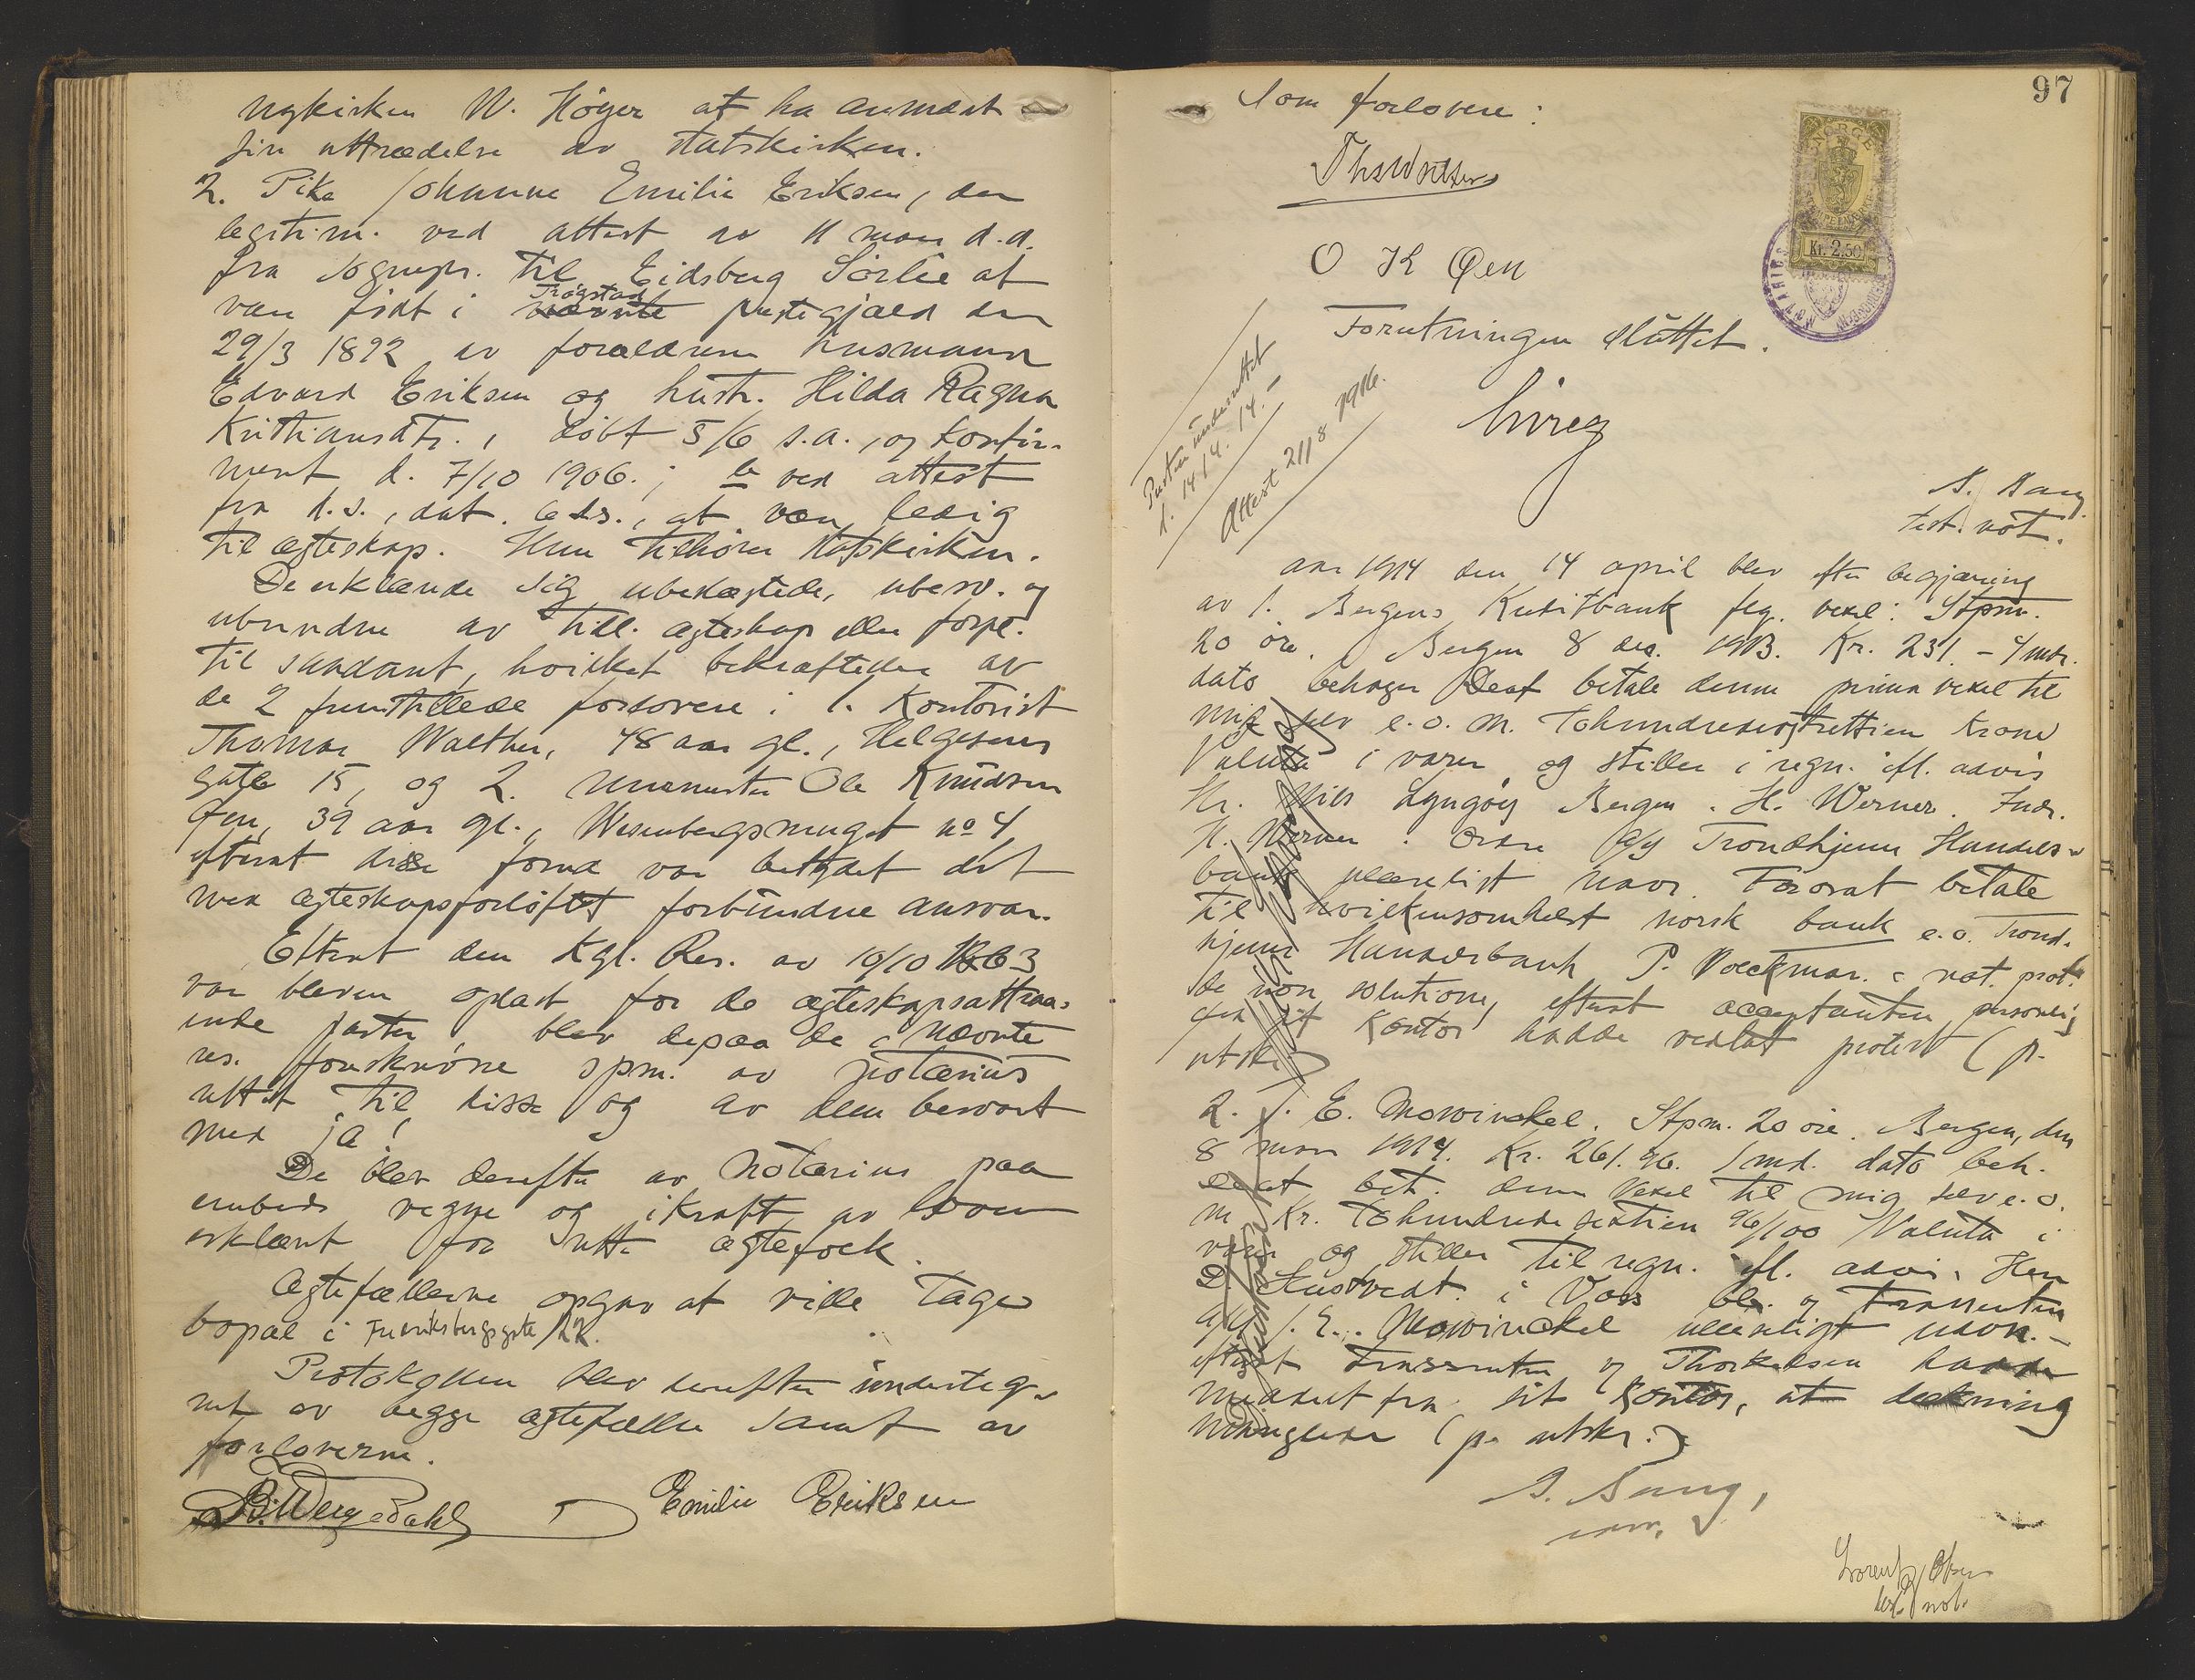 Nykirken W. Høyer at ha anmeldt
sin uttrædelse av statskirken.
2. Pike Johanne Emilie Eriksen, der
legitim. ved attest av 11 mars d.a.
fra sognepr. til Eidsberg Sørlie at
være født i Trøgstad nævnte prestegjæld den
29/3 1892 av forældrene husmann
Edvard Eriksen og hustr. Hilda Ragna
Kristiansdtr., døbt 5/6 s.a., og konfir-
mert d. 7/10 1906.; b ved attest
fra d.s., dat. s.d., at være ledig
til ægteskap. Hun tilhører statskirken.
De erklærede sig ubeslægtede, ubesv. og
ubundne av tidl. ægteskap eller forpl.
til saadant, hvilket bekræftedes av
de 2 fremstillede forlovere: 1. Kontorist
Thomas Walther, 48 aar gl., Helgesens
gate 15, og 2. murmester Ole Knudsen
Øen, 39 aar gl., Wesenbergsmuget no 4,
efterat disse forud var betydet det
med ægteskapsforløftet forbundne ansvar.
Efterat den Kgl. Res. av 10/10 1863
var bleven oplæst for de ægteskapsattraa-
ende parter, blev depaa de i nævnte
res. foreskrevne spm. av notarius
rettet til disse og av dem besvart
med ja!
De blev derefter av Notarius paa
embeds vegne og i kraft av loven
erklært for rette ægtefolk.
Ægtefællerne opgav at ville tage
bopæl i Fredriksbergsgate 22.
Protokollen blev derefter underteg-
net av begge ægtefæller samt av
forloverne.
B. Wergedahl Emilie Eriksen
97
Som forlovere:
Th. Walther
O K Øen
NORGE
Kr. 2.50
Forretningen sluttet.
Presten underrettet
d. 14/4. 14.
Attest 21/8 1916.
S. Bang
test. not.
Aar 1914 den 14 april blev efter begjæring
av 1. Bergens Kreditbank flg. vexel: Stpm.
20 øre. Bergen 8 des. 1913. Kr. 231. - 4 mdr.
dato behager Deat betale denne prima vexel til
mig selv e.o. m. Tohundredeogtrettien Krone
Valuta i varer og stilles i regn. ifl. advis
Hr. Nils Lyngøy Bergen. H. Werner. Indr.
H. Werner. Ordre A/S Trondhjems Handels-
bank ulæseligt navn. Forosat betale
til hvilkensomhelst norsk bank e.o. Trond-
hjems Handelsbank P. Voeckmar. c not. prot.
de non solutione, efterat acceptanten personlig
paa sit kontor hadde vedtat protest (p.
utskr.)
2. J. E. Mowinckel. Stpm. 20 øre. Bergen, den
8 mars 1914. Kr. 261.96. 1 md. dato beh.
Deat bet. denne vexel til mig selv e.o.
m Kr. Tohundrede sextien 96/100 Valuta i
varer og stilles til regn. ifl. advis. Herr
D. Hustvedt i Voss og Trassenten
J. E. Mowinckel ulæseligt navn.-
efterat trassenten og Thorkelsen hadde
meddelt fra sit kontor, at dækning
manglede (p. utskr.)
S. Bang,
Lorentz Olsen
test. not.